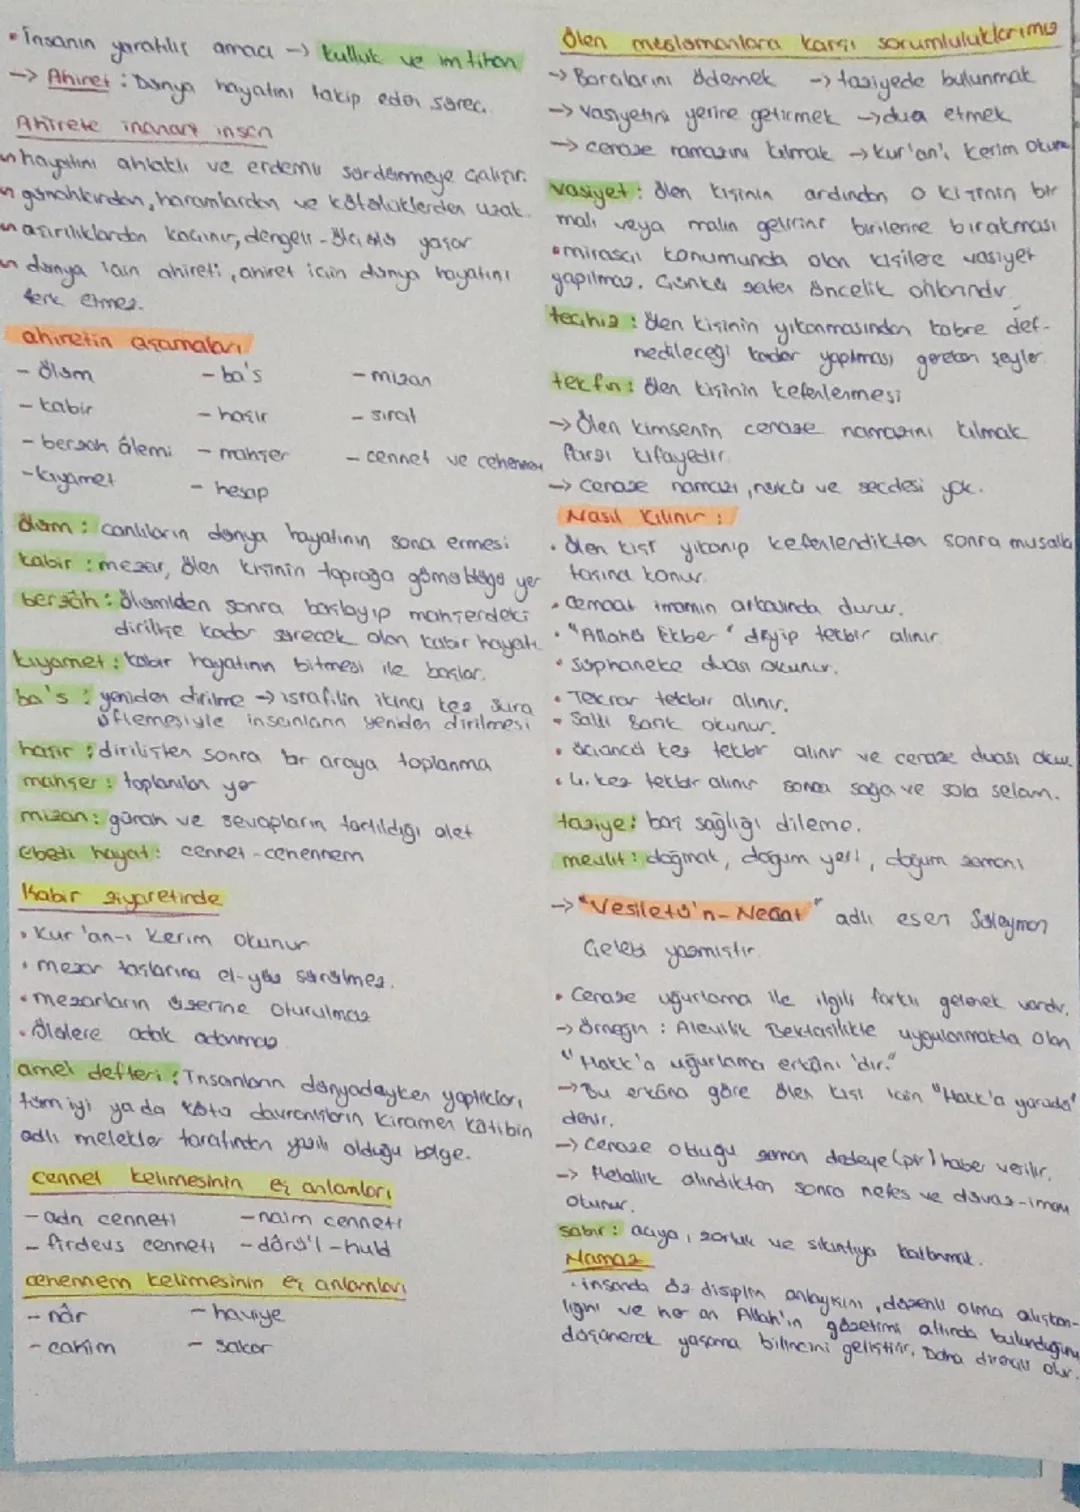 • İnsanın yaratılış amacı → kulluk ve imtihan
→ Ahiret : Dünya hayatını takip eden süreç.
Ahirete inanan insan
hayatını ahlaklı ve erdemli sürdürmeye çalışır.
günahlardan, haramlardan ve kötülüklerden uzak.
aşırılıklardan kaçınır, dengeli - ölçülü yaşar
dünya için ahireti, ahiret için dünya hayatını
terk etmez.
ahiretin aşamaları
- ölüm - ba's - mizan
- kabir - haşir - sırat
- berzah âlemi - mahşer - cennet ve cehennem
- kıyamet - hesap
ölüm : canlıların dünya hayatının sona ermesi
kabir : mezar, ölen kişinin toprağa gömüldüğü yer
berzâh : ölümden sonra başlayıp mahşerdeki
dirilişe kadar sürecek olan kabir hayatı.
kıyamet : kabir hayatının bitmesi ile başlar.
ba's : yeniden dirilme → israfilin ikinci kez sura
üflemesiyle insanların yeniden dirilmesi
haşir : dirilişten sonra bir araya toplanma
mahşer : toplanılan yer
mizan : günah ve sevapların tartıldığı alet
ebedi hayat : cennet - cehennem
Kabir ziyaretinde
• Kur'an-ı Kerim okunur
• mezar taşlarına el-yüz sürülmez.
• mezarların üzerine oturulmaz
• ölülere adak adanmaz
amel defteri : İnsanların dünyadayken yaptıkları
tüm iyi ya da kötü davranışların Kiramen Katibin
adlı melekler tarafından yazılı olduğu belge.
cennet kelimesinin eş anlamları
- adn cenneti - naim cenneti
- firdevs cenneti - dârü'l - huld
cehennem kelimesinin eş anlamları
- nâr - haviye
- cahim - sakar
Ölen müslümanlara karşı sorumluluklarımız
→ Borçlarını ödemek → taziyede bulunmak
→ Vasiyetini yerine getirmek → dua etmek
→ cenaze namazını kılmak → Kur'an'ı Kerim okuma
vasiyet : ölen kişinin ardından o kişinin bir
malı veya malın gelirini birilerine bırakması
• mirasçı konumunda olan kişilere vasiyet
yapılmaz. Çünkü zaten öncelik onlarındır.
techiz : ölen kişinin yıkanmasından kabre def-
nedileceği kadar yapılması gereken şeyler
tekfin : ölen kişinin kefenlenmesi
→ Ölen kimsenin cenaze namazını kılmak
farzı kifayedir.
→ Cenaze namazı, rükû ve secdesi yok.
Nasıl Kılınır :
• ölen kişi yıkanıp kefenlendikten sonra musalla
taşına konur.
• Cemaat imamın arkasında durur.
• "Allahü Ekber" deyip tekbir alınır.
• Süphaneke duası okunur.
• Tekrar tekbir alınır.
• Salli Barik okunur.
• üçüncü kez tekbir alınır ve cenaze duası oku.
• 4. kez tekbir alınır sonra sağa ve sola selam.
taziye : baş sağlığı dileme.
mevlit : doğmak, doğum yeri, doğum zamanı
→ "Vesiletü'n-Necat" adlı eseri Süleyman
Çelebi yazmıştır.
• Cenaze uğurlama ile ilgili farklı gelenek vardır.
→ Örneğin : Alevilik Bektaşilikte uygulanmakta olan
"Hakk'a uğurlama erkânı'dır."
→ Bu erkâna göre ölen kişi için "Hakk'a yürüdü"
denir.
→ Cenaze olduğu zaman dedeye (pir) haber verilir.
→ Helallik alındıktan sonra nefes ve düvaz-imam
okunur.
sabır : acıya, zorluk ve sıkıntıya katlanmak.
Namaz
• insanda öz disiplin anlayışını, düzenli olma alışkan-
lığını ve her an Allah'ın gözetimi altında bulunduğunu
düşünerek yaşama bilincini geliştirir. Daha dirençli olur.